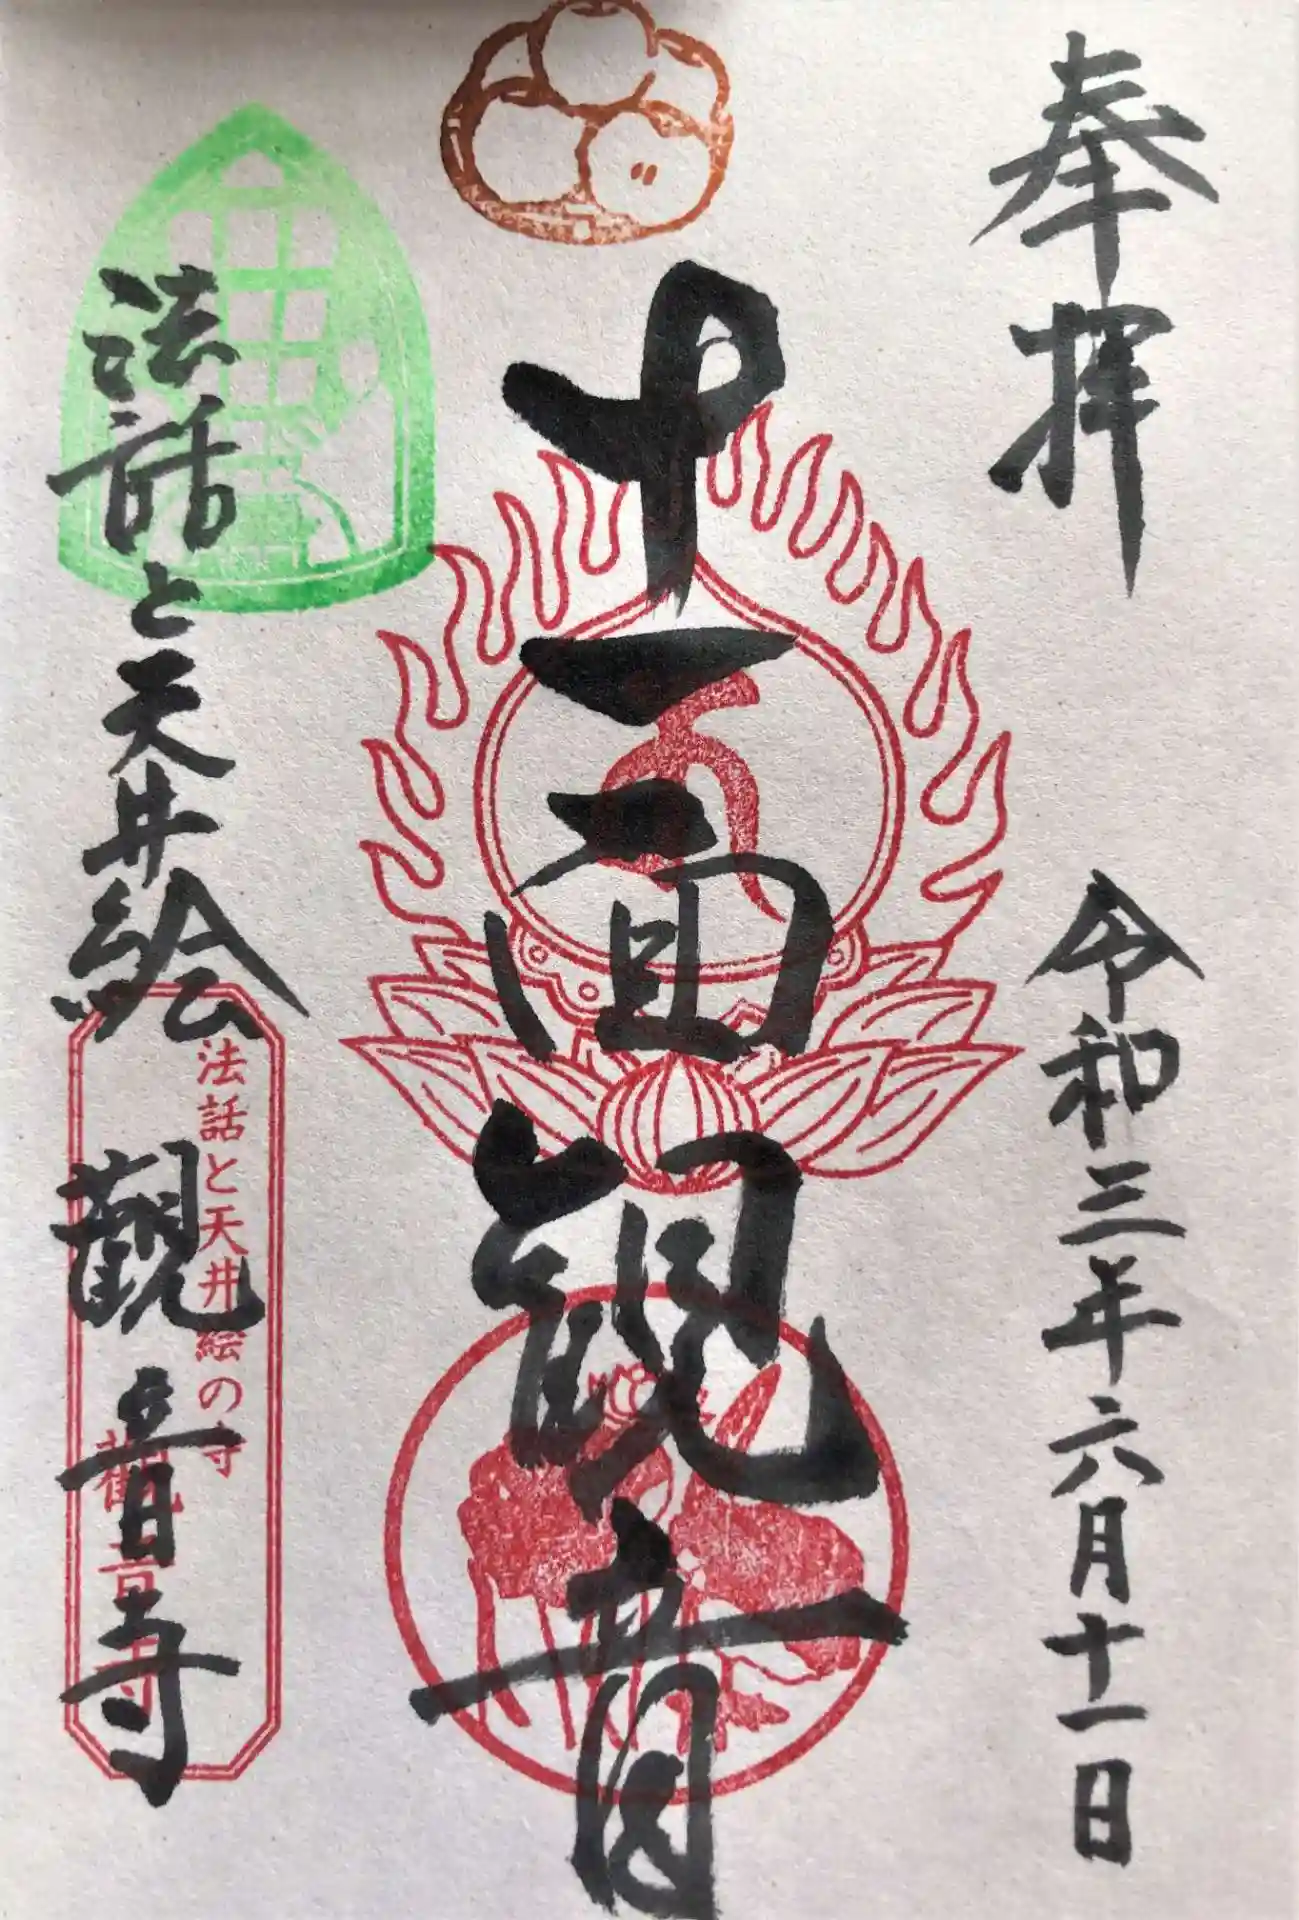 奉拝
令和三年六月十一日
十一面観音
法話と天井絵
觀音寺
法話と天井絵の寺
觀音寺